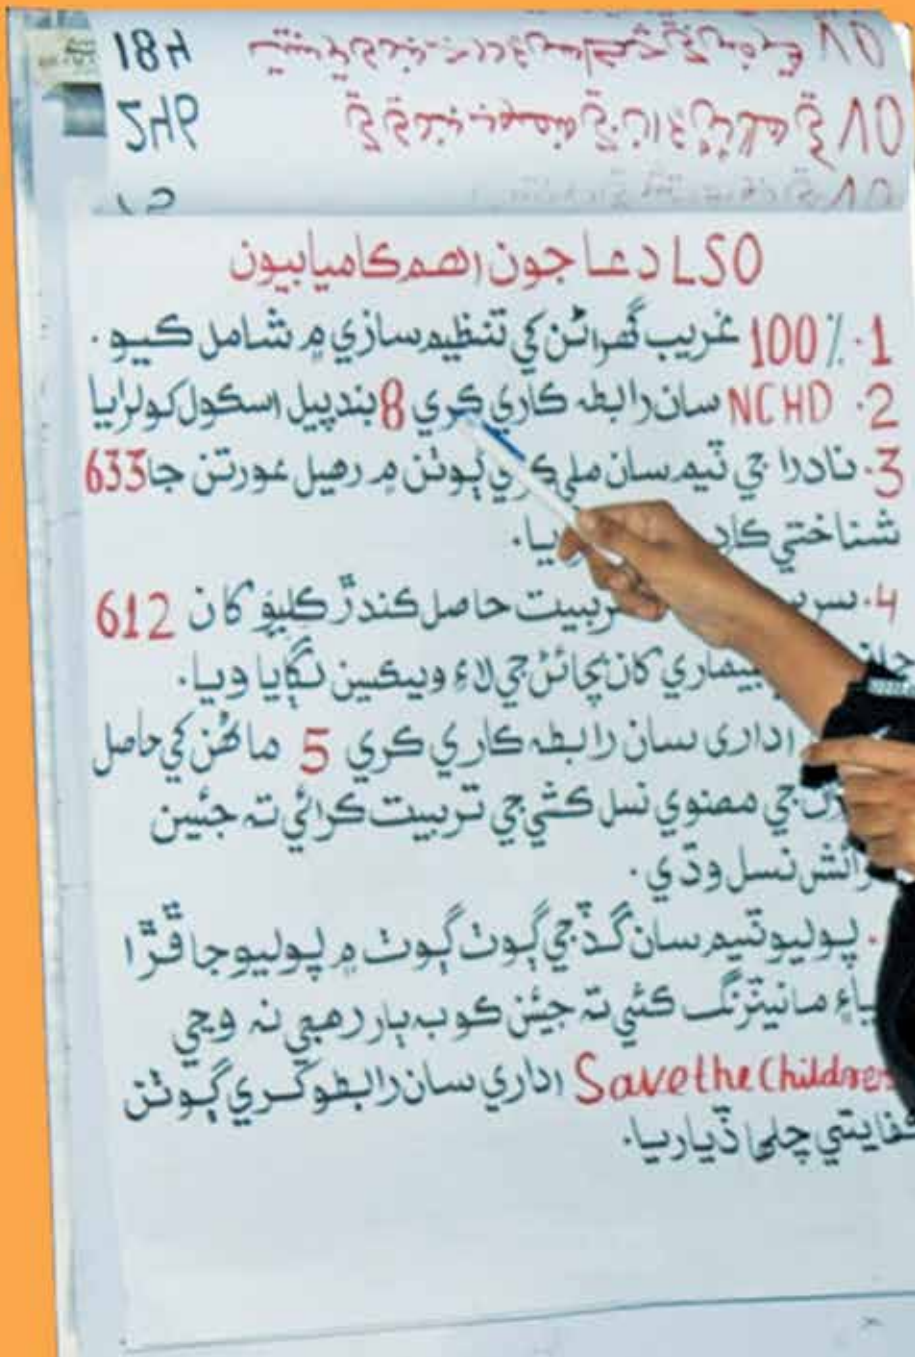 18H
5H9
LSO دعا جون اهم ڪاميابيون
1. 100% غريب گھراڻن کي تنظيم سازي ۾ شامل ڪيو.
2. NCHD سان رابطہ ڪاري ڪري 8 بند پيل اسڪول کولرايا
3. نادرا جي ٽيم سان ملي ڪري ڳوٺن ۾ رهيل عورتن جا 633
شناختي ڪارڊ
4. تربيت حاصل ڪندڙ ڪليو کان 612
بيماري کان بچائڻ جي لاءِ ويڪسين لڳايا ويا.
اداري سان رابطہ ڪاري ڪري 5 ماڻهن کي حاصل
جي مصنوي نسل ڪشي جي تربيت ڪرائي تہ جيئن
نسل وڌي.
پوليو ٽيم سان گڏجي ڳوٺ ڳوٺ ۾ پوليو جا ڦڙا
مانيٽرنگ ڪئي تہ جيئن ڪو بہ ٻار رهجي نہ وڃي
Save the Children اداري سان رابطو ڪري ڳوٺن
ڪفايتي چلها ڏياريا.